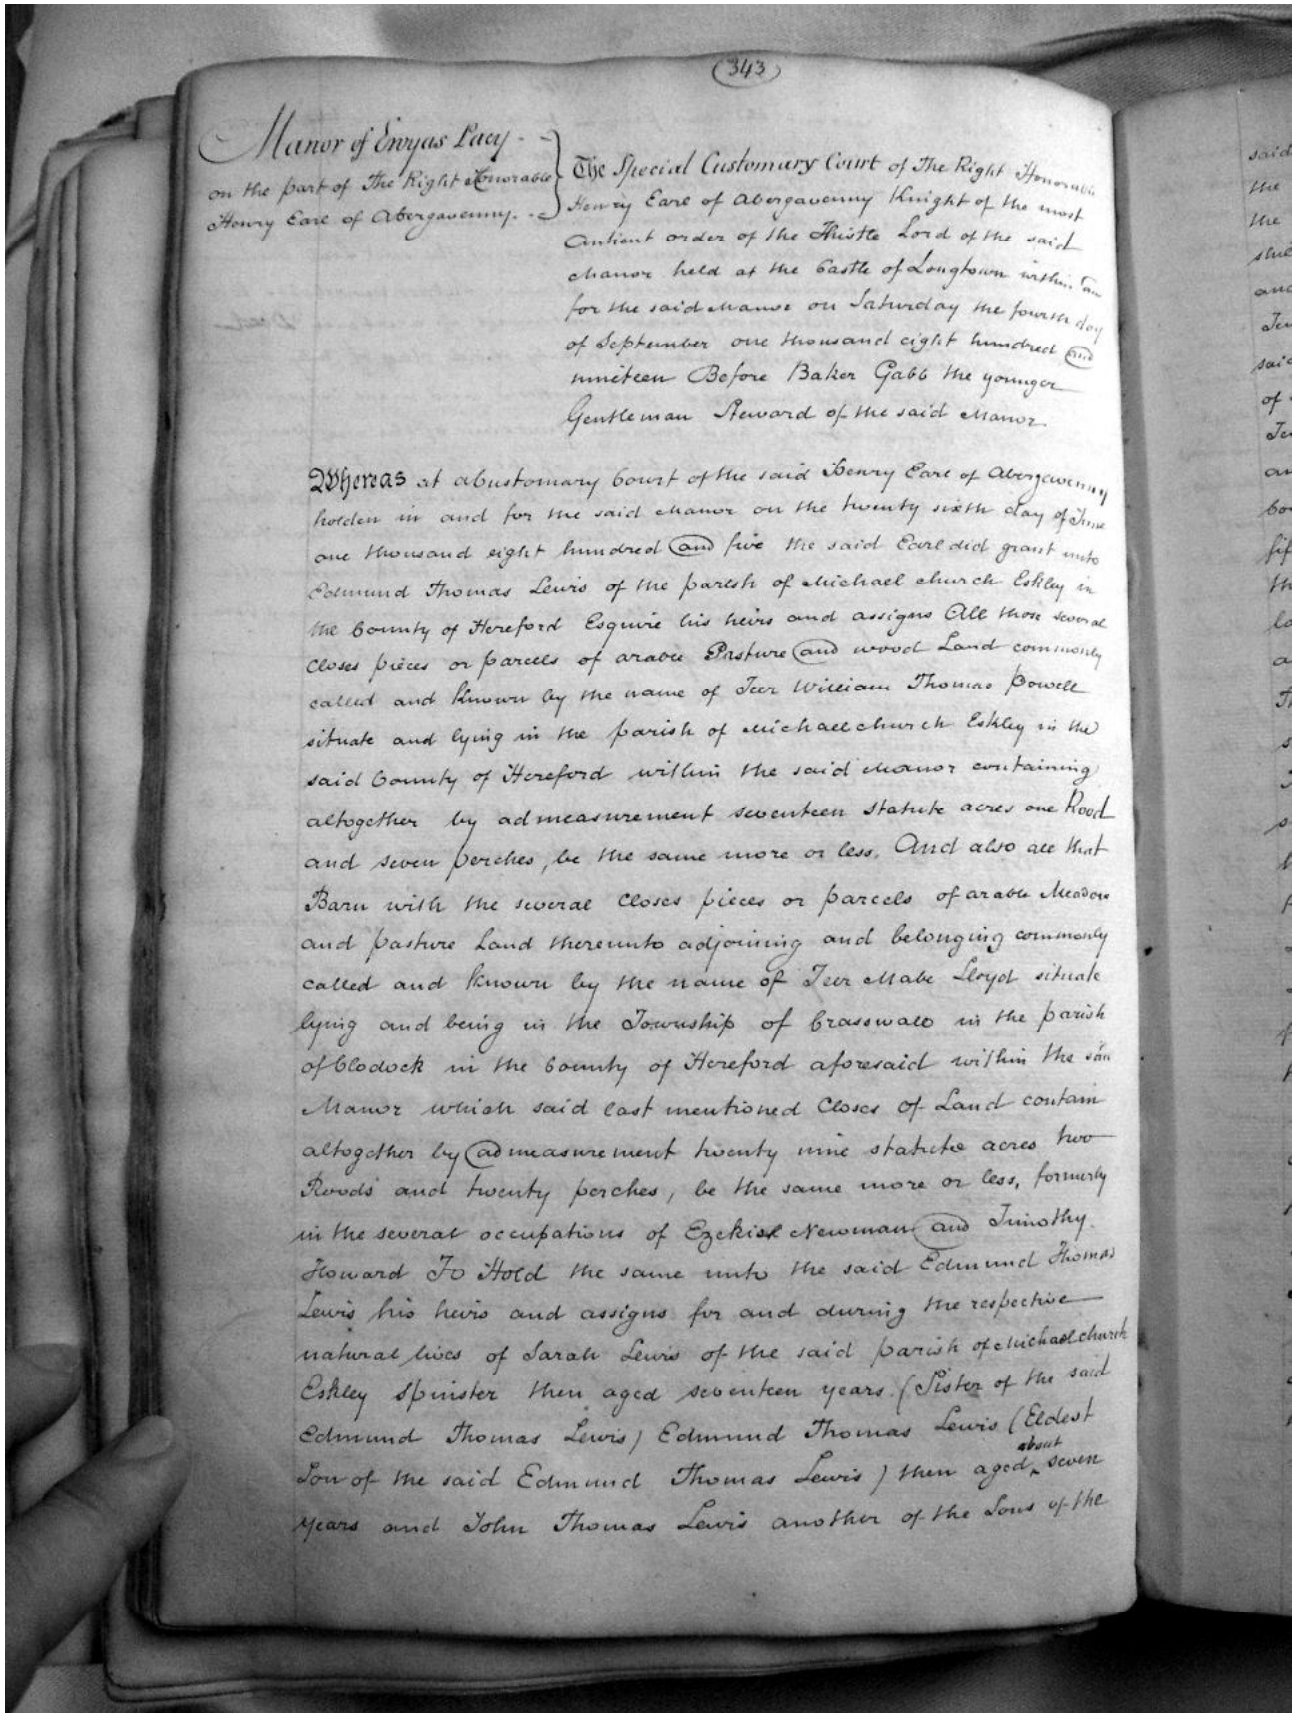 343
Manor of Ewyas Lacy
on the part of The Right Honorable
Henry Earl of Abergavenny.
The Special Customary Court of The Right Honorable
Henry Earl of Abergavenny Knight of the most
Antient order of the Thistle Lord of the said
Manor held at the Castle of Longtown within an
for the said Manor on Saturday the fourth day
of September one thousand eight hundred and
nineteen Before Baker Gabb the younger
Gentleman Steward of the said Manor.
Whereas at a Customary Court of the said Henry Earl of Abergavenny
holden in and for the said Manor on the twenty sixth day of June
one thousand eight hundred and five the said Earl did grant unto
Edmund Thomas Lewis of the parish of Michael church Eskley in
the County of Hereford Esquire his heirs and assigns All those several
Closes pieces or parcels of arable Pasture and wood Land commonly
called and known by the name of Teer William Thomas Powell
situate and lying in the parish of Michaelchurch Eskley in the
said County of Hereford within the said Manor containing
altogether by admeasurement seventeen statute acres one Rood
and seven perches, be the same more or less. And also all that
Barn with the several Closes pieces or parcels of arable Meadow
and pasture Land thereunto adjoining and belonging commonly
called and known by the name of Teer Mabe Lloyd situate
lying and being in the Township of Crasswall in the parish
of Clodock in the County of Hereford aforesaid within the said
Manor which said last mentioned Closes of Land contain
altogether by admeasurement twenty nine statute acres two
Roods and twenty perches, be the same more or less, formerly
in the several occupations of Ezekiel Newman and Timothy
Howard To Hold the same unto the said Edmund Thomas
Lewis his heirs and assigns for and during the respective
natural lives of Sarah Lewis of the said parish of Michaelchurch
Eskley Spinster then aged seventeen years (Sister of the said
Edmund Thomas Lewis) Edmund Thomas Lewis (Eldest
Son of the said Edmund Thomas Lewis) then aged about seven
years and John Thomas Lewis another of the Sons of the